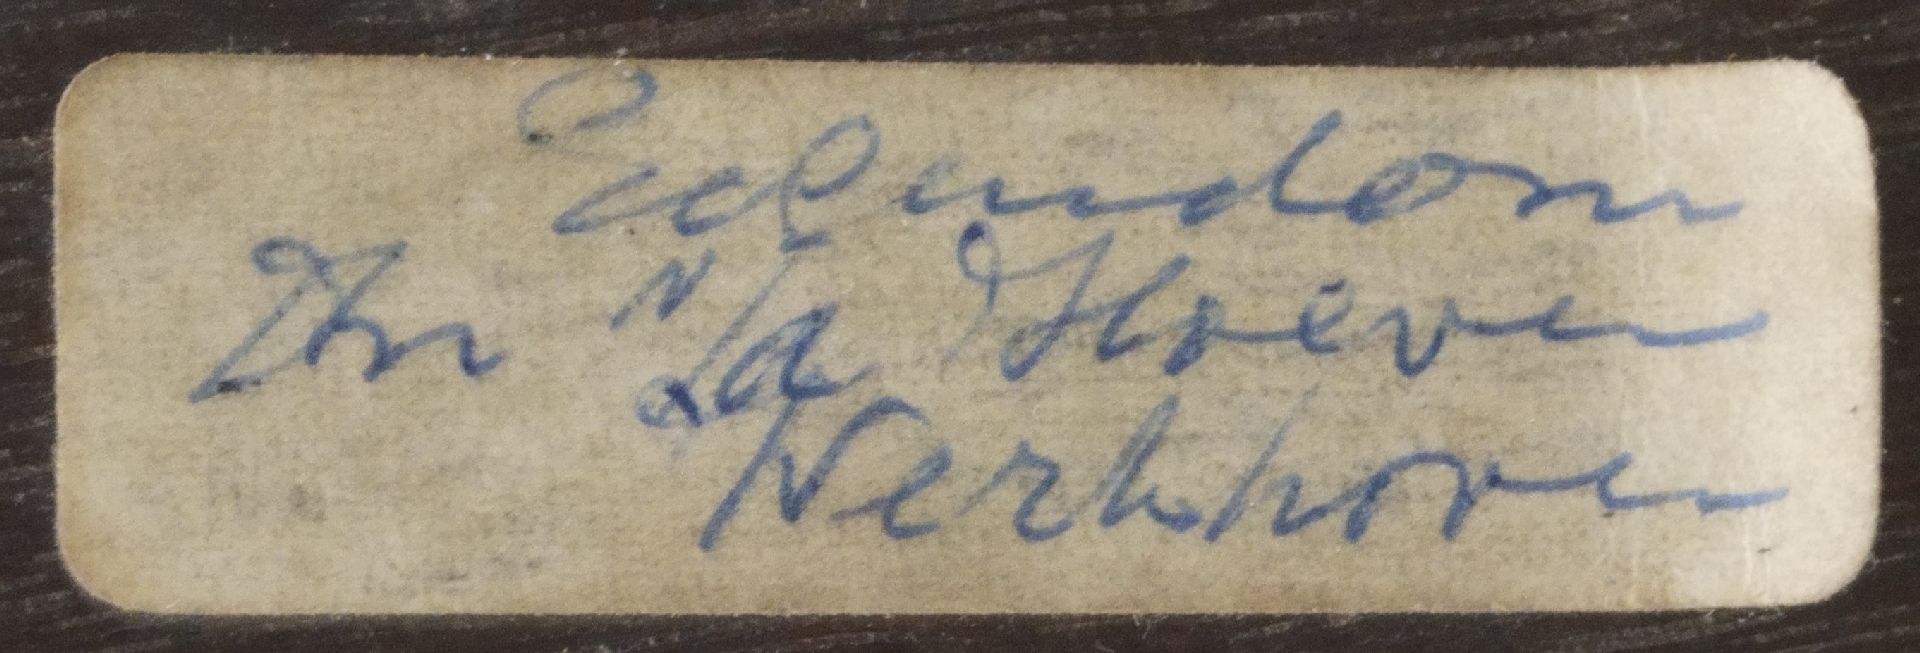 Eigendom
Dhr v/d Hoeven
Werkhoven